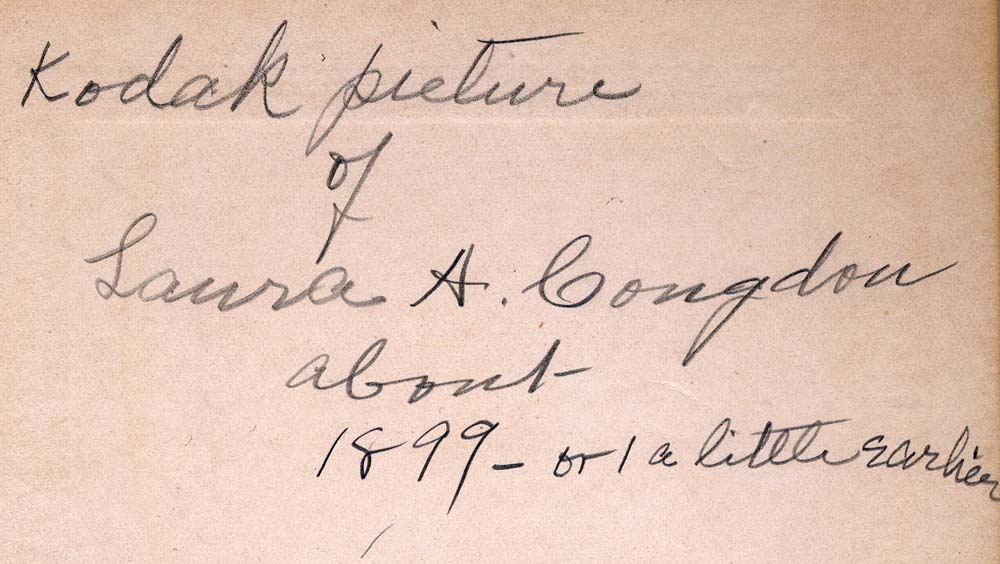 Kodak picture
of
Laura A. Congdon
about
1899 - or a little earlier